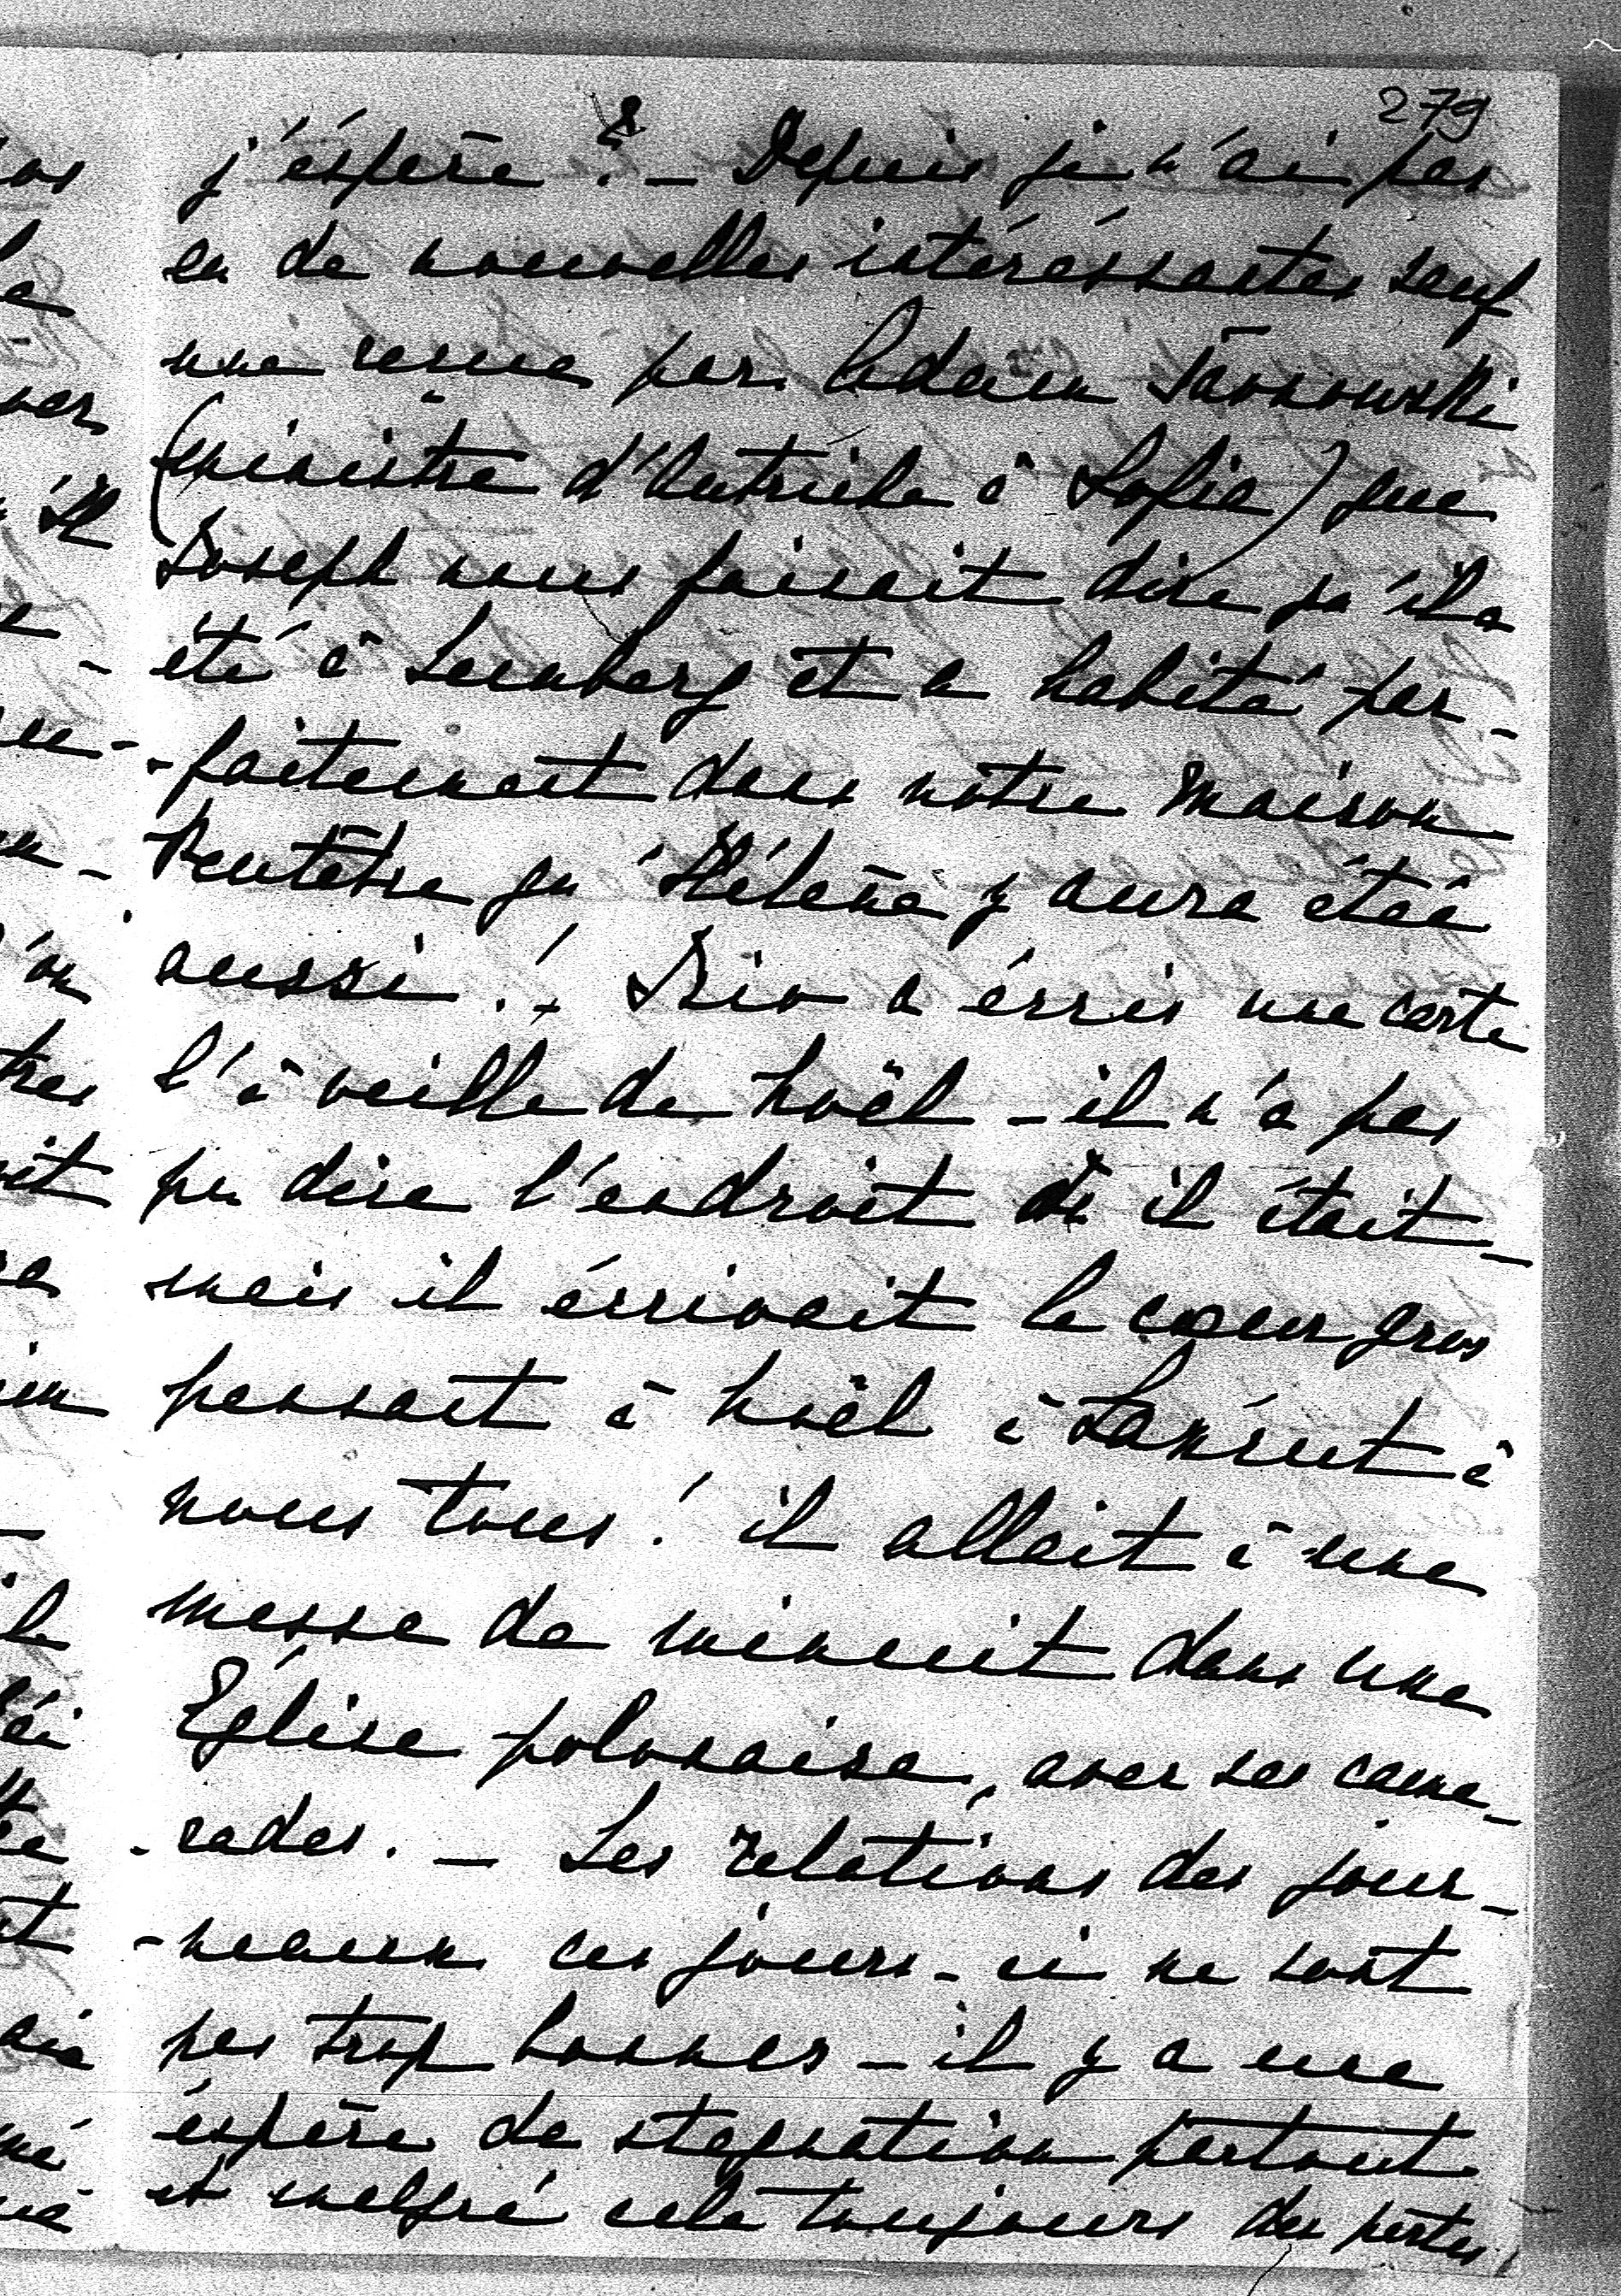 279
8
j'éspère ? — Depuis je n'ai pas
eu de nouvelles intéréssantes sauf
une reçue par Adam Tarnowski
(ministre d'Autriche à Sofia) que
Joseph nous faisait dire qu'il a
été à Lemberg et a habité par-
-faitement dans notre maison
Peutêtre qu'Hélène y aura été
aussi ! — a écris une carte
l'à veille de Noël — il n'a pas
pu dire l'endroit où il était —
mais il écrivait le cœur gros
pensant à Noël à Łańcut à
nous tous ! il allait à une
messe de minuit dans une
Eglise polonaise, avec ses cama-
-rades. — Les relations des jour-
-neaux ces jours-ci ne sont
pas trop bonnes — il y a une
éspèce de stagnation partout
et malgré cela toujours des pertes